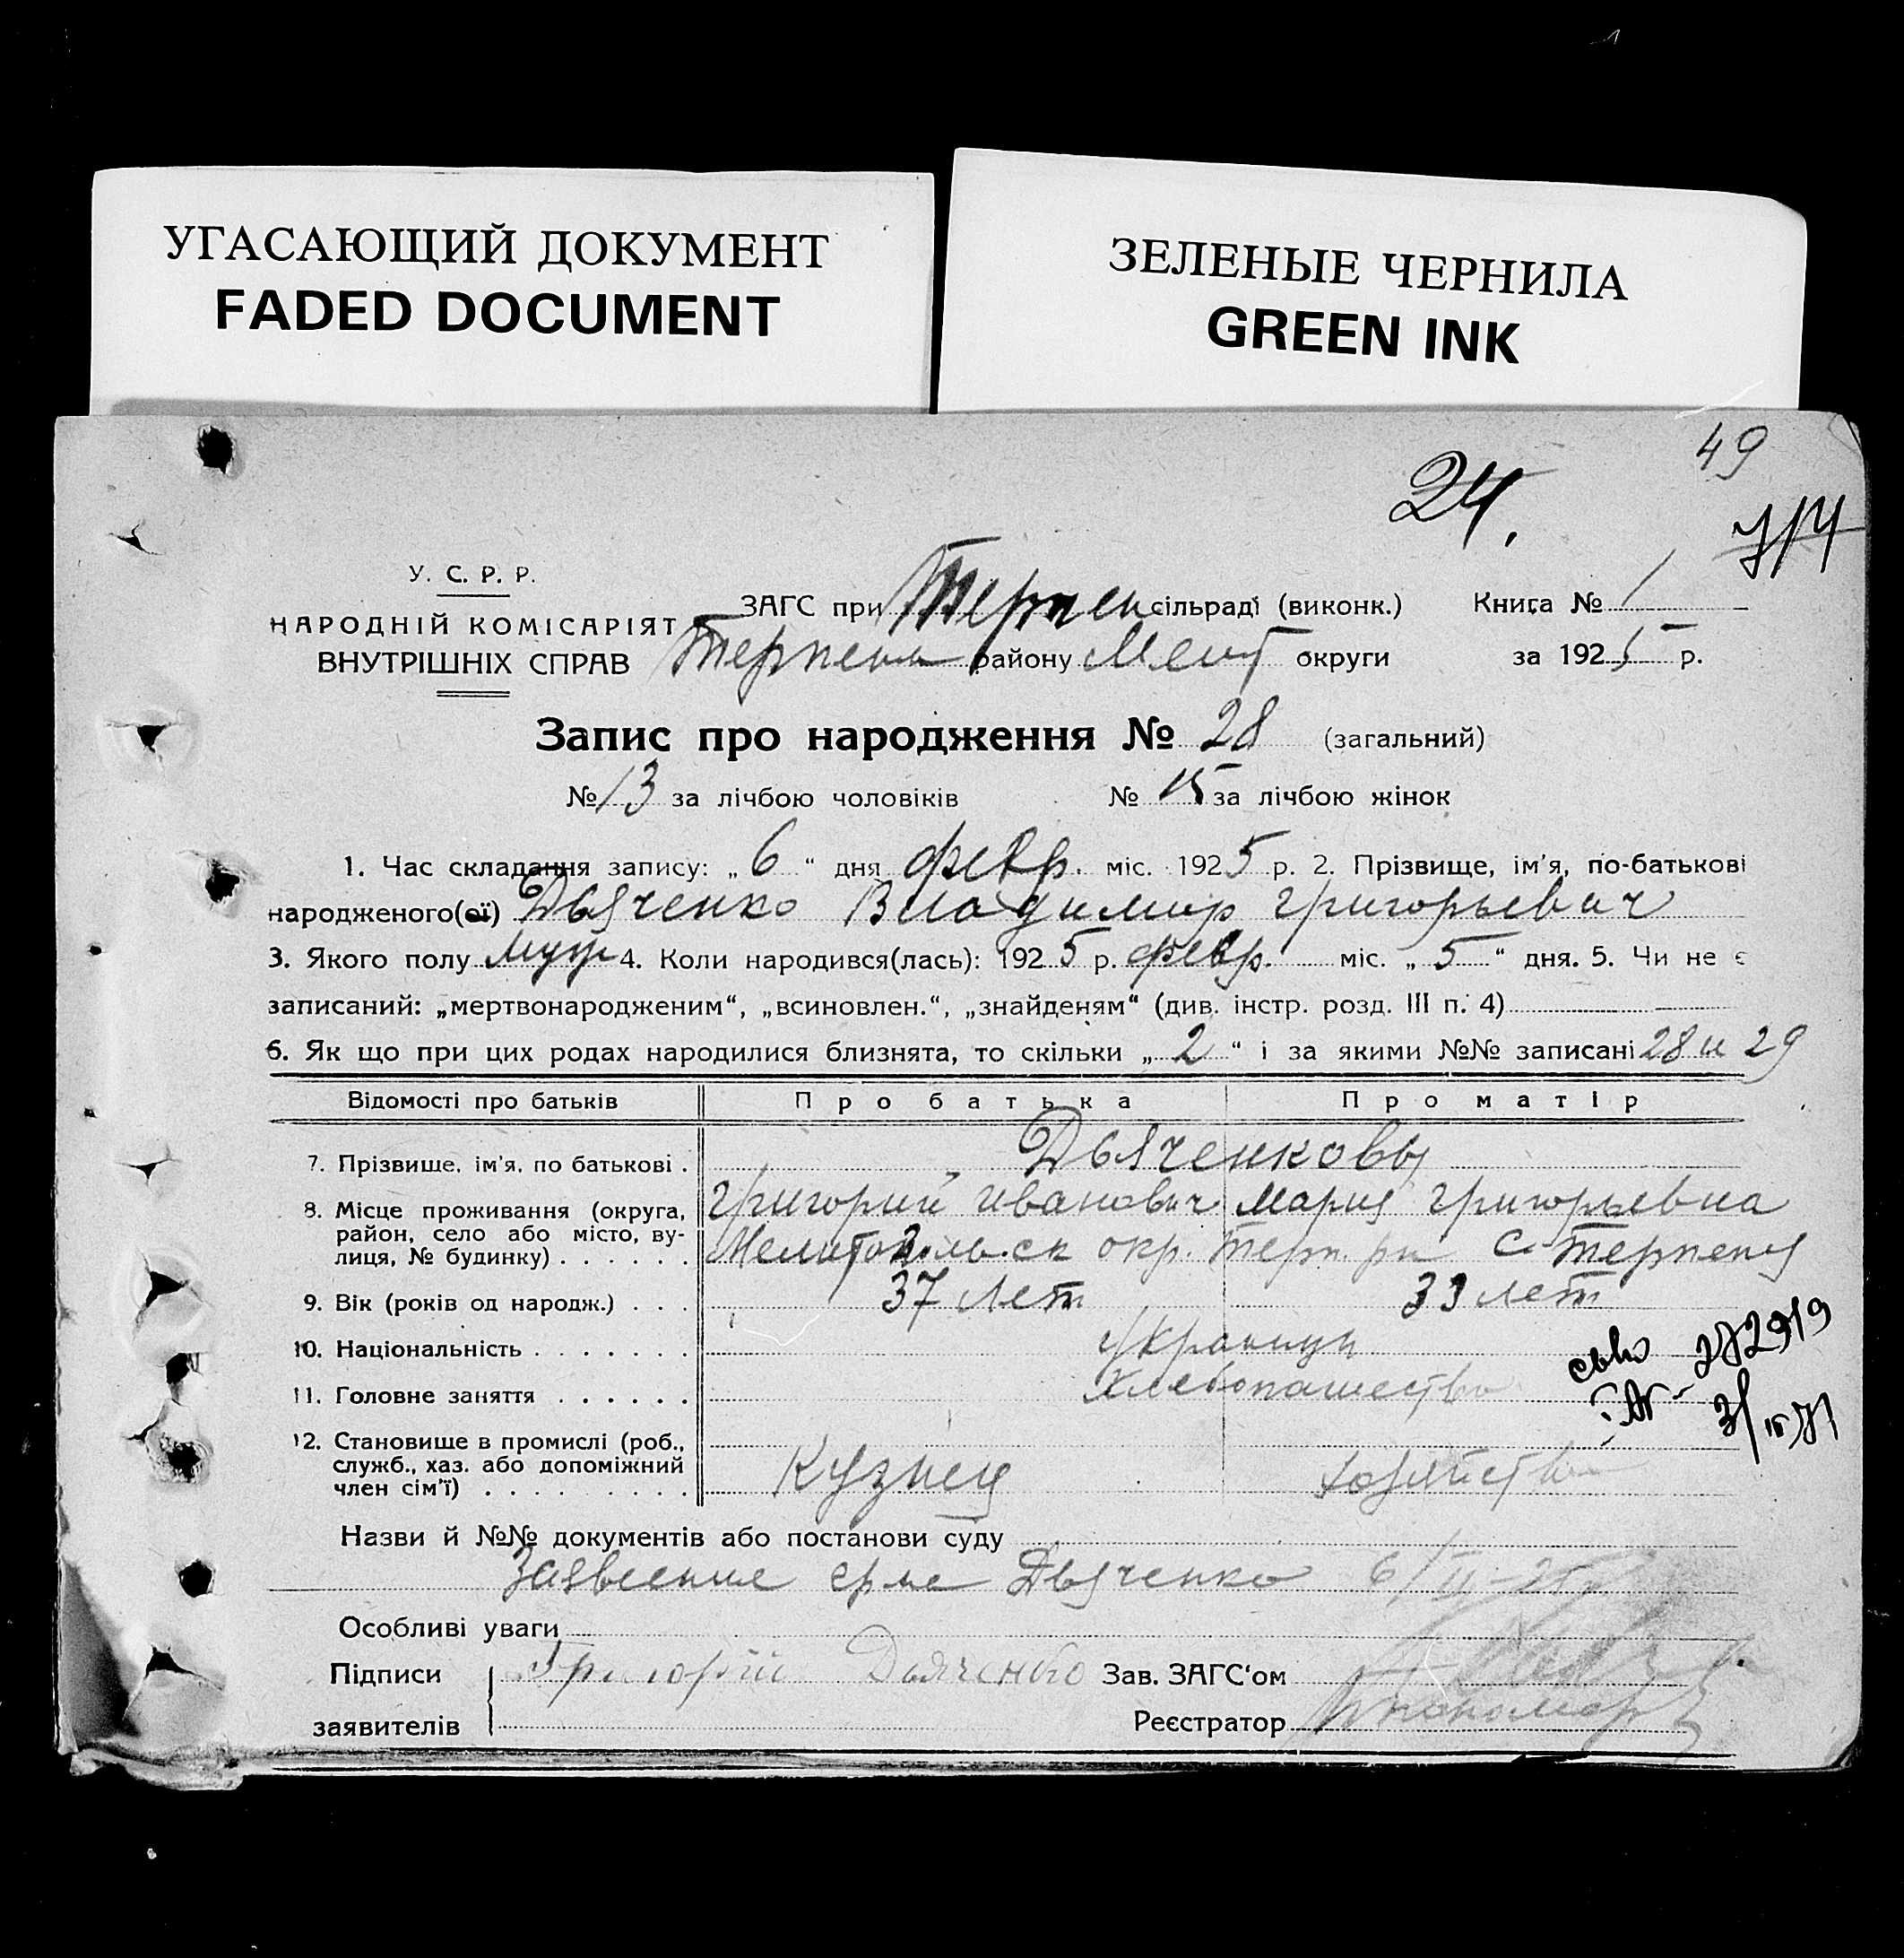 УГАСАЮЩИЙ ДОКУМЕНТ
FADED DOCUMENT
ЗЕЛЕНЫЕ ЧЕРНИЛА
GREEN INK
49
24.
7/4
У. С. Р. Р.
НАРОДНІЙ КОМІСАРІЯТ
ВНУТРІШНІХ СПРАВ
ЗАГС при Терпен сільраді (виконк.) Книга № 1
Терпени району Мелит округи за 1925 р.
Запис про народження № 28 (загальний)
№ 13 за лічбою чоловіків № 15 за лічбою жінок
1. Час складання запису: „ 6 “ дня февр. міс. 1925 р. 2. Прізвище, ім'я, по-батькові
народженого(ої) Дьяченко Владимир Григорьевич
3. Якого полу муж 4. Коли народився(лась): 1925 р. февр. міс. „ 5 “ дня. 5. Чи не є
записаний: „мертвонародженим“, „всиновлен.“, „знайденям“ (див. інстр. розд. III п. 4)
6. Як що при цих родах народилися близнята, то скільки „ 2 “ і за якими №№ записані 28 и 29
Відомості про батьків Про батька Про матір
7. Прізвище, ім'я, по батькові . Дьяченковы
Григорий Иванович Мария Григорьевна
8. Місце проживання (округа,
район, село або місто, ву-
лиця, № будинку) . . . . . . Мелитопольск окр. Терп. рн с. Терпения
9. Вік (років од народж.) . . . 37 лет 33 лет
10. Національність . . . . . . . Украинцы
11. Головне заняття . . . . . . Хлебопашество
12. Становище в промислі (роб.,
служб., хаз. або допоміжний
член сім'ї) . . . . . . . . . Кузнец хозяйство
Назви й №№ документів або постанови суду
Заявление Дьяченко 6/II-25
Особливі уваги
Підписи Григорій Дьяченко Зав. ЗАГС‘ом
заявителів Реєстратор Пономар